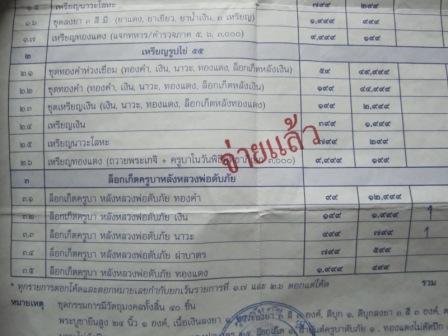 ๑.๕ เหรียญนาวะโลหะ ๗๙๙ ๒๙๙
๑.๖ ชุดลงยา ๓ สี มี (ยาแดง, ยาเขียว, ยาน้ำเงิน, ๓ เหรียญ) ๑,๙๙๙ ๙๙๙
๑.๗ เหรียญทองแดง (แจกทหาร/ตำรวจภาค ๕, ๖, ๓,๐๐๐) ๙,๙๙๙ ๑๙๙
๒ เหรียญรูปไข่ ๕๕
๒.๑ ชุดทองคำห่วงเชื่อม (ทองคำ, เงิน, นาวะ, ทองแดง, ล็อกเก็ตหลังเงิน) ๕๙ ๔๙,๙๙๙
๒.๒ ชุดทองคำ (ทองคำ, เงิน, นาวะ, ทองแดง, ล็อกเก็ตหลังเงิน) ๑๙๙ ๔๔,๙๙๙
๒.๓ ชุดเหรียญเงิน (เงิน, นาวะ, ทองแดง, ล็อกเก็ตหลังทองแดง) ๑๙๙ ๒,๙๙๙
๒.๔ เหรียญเงิน ๓๙๙ ๑,๙๙๙
๒.๕ เหรียญนาวะโลหะ ๗๙๙ ๒๙๙
๒.๖ เหรียญทองแดง (ถวายพระเกจิ + ครูบาในวันพิธี ๓,๐๐๐) ๙,๙๙๙ ๑๙๙
จ่ายแล้ว
๓ ล็อกเก็ตครูบาหลังหลวงพ่อดับภัย
๓.๑ ล็อกเก็ตครูบา หลังหลวงพ่อดับภัย ทองคำ ๙๙ ๑๒,๙๙๙
๓.๒ ล็อกเก็ตครูบา หลังหลวงพ่อดับภัย เงิน ๑๙๙ ๑,๙๙๙ 1
๓.๓ ล็อกเก็ตครูบา หลังหลวงพ่อดับภัย นาวะ ๔๙๙ ๗๙๙ 1
๓.๔ ล็อกเก็ตครูบา หลังหลวงพ่อดับภัย ฝาบาตร ๗๙๙ ๕๙๙
๓.๕ ล็อกเก็ตครูบา หลังหลวงพ่อดับภัย ทองแดง ๑,๙๙๙ ๔๙๙
* ทุกรายการตอกโค้ดและตอกหมายเลขกำกับยกเว้นรายการที่ ๑.๗ และ ๒.๖ ตอกแต่โค้ด รวม
หมายเหตุ ชุดกรรมการมีวัตถุมงคลทั้งสิ้น ๔๐ ชิ้น
พระบูชายืนสูง ๒๔ นิ้ว ๑ องค์, เนื้อเงินลงยา ๓ สี ๓ องค์, ดีบุก ๑, ดีบุกลงยา ๓ สี ๓ องค์,